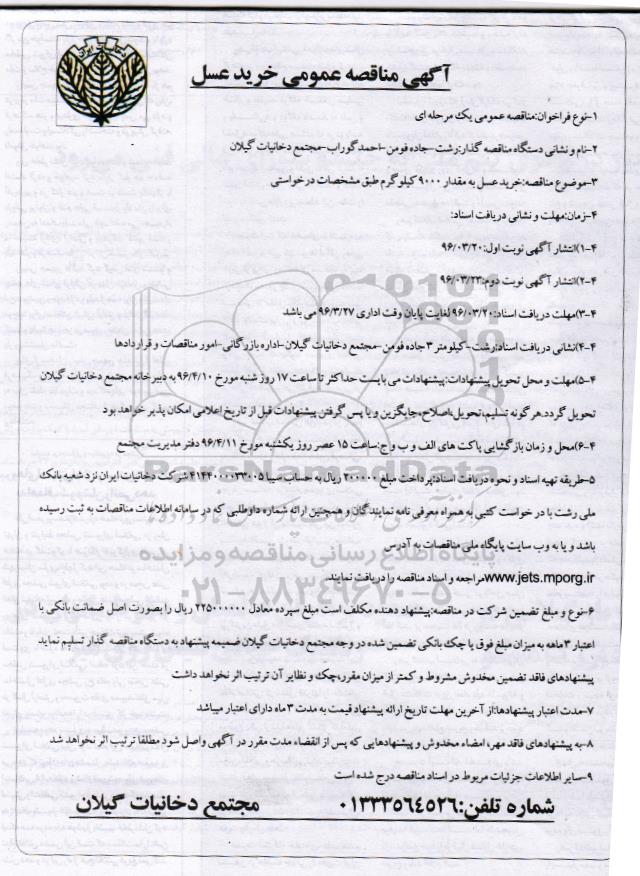 آگهی مناقصه عمومی خرید عسل
۱-نوع فراخوان:مناقصه عمومی یک مرحله ای
۲-نام و نشانی دستگاه مناقصه گذار:رشت-جاده فومن-احمدگوراب-مجتمع دخانیات گیلان
۳-موضوع مناقصه:خرید عسل به مقدار ۹۰۰۰ کیلو گرم طبق مشخصات درخواستی
۴-زمان:مهلت و نشانی دریافت اسناد:
۴-۱)انتشار آگهی نوبت اول:۹۶/۰۳/۲۰
۴-۲)انتشار آگهی نوبت دوم:۹۶/۰۳/۲۳
۴-۳)مهلت دریافت اسناد:۹۶/۰۳/۲۰ لغایت پایان وقت اداری ۹۶/۳/۲۷ می باشد
۴-۴)نشانی دریافت اسناد:رشت-کیلومتر ۳ جاده فومن-مجتمع دخانیات گیلان-اداره بازرگانی-امور مناقصات و قراردادها
۴-۵)مهلت و محل تحویل پیشنهادات:پیشنهادات می بایست حداکثر تا ساعت ۱۷ روز شنبه مورخ ۹۶/۴/۱۰ به دبیرخانه مجتمع دخانیات گیلان
تحویل گردد.هر گونه تسلیم،تحویل،اصلاح،جایگزین و یا پس گرفتن پیشنهادات قبل از تاریخ اعلامی امکان پذیر خواهد بود
۴-۶)محل و زمان بازگشایی پاکت های الف و ب و ج:ساعت ۱۵ عصر روز یکشنبه مورخ ۹۶/۴/۱۱ دفتر مدیریت مجتمع
۵-طریقه تهیه اسناد و نحوه دریافت اسناد:پرداخت مبلغ ۲۰۰۰۰۰ ریال به حساب سیبا ۴۱۴۴۰۰۰۰۳۳۰۰۵ شرکت دخانیات ایران نزد شعبه بانک
ملی رشت با در خواست کتبی به همراه معرفی نامه نمایندگان و همچنین ارائه شماره داوطلبی که در سامانه اطلاعات مناقصات به ثبت رسیده
باشد و یا به وب سایت پایگاه ملی مناقصات به آدرس
www.jets.mporg.ir مراجعه و اسناد مناقصه را دریافت نمایند.
۶-نوع و مبلغ تضمین شرکت در مناقصه:پیشنهاد دهنده مکلف است مبلغ سپرده معادل ۲۲۵۰۰۰۰۰۰ ریال را بصورت اصل ضمانت بانکی با
اعتبار ۳ ماهه به میزان مبلغ فوق یا چک بانکی تضمین شده در وجه مجتمع دخانیات گیلان ضمیمه پیشنهاد به دستگاه مناقصه گذار تسلیم نماید
پیشنهادهای فاقد تضمین مخدوش مشروط و کمتر از میزان مقرر،چک و نظایر آن ترتیب اثر نخواهد داشت
۷-مدت اعتبار پیشنهادها:از آخرین مهلت تاریخ ارائه پیشنهاد قیمت به مدت ۳ ماه دارای اعتبار میباشد
۸-به پیشنهادهای فاقد مهر،امضاء مخدوش و پیشنهادهایی که پس از انقضاء مدت مقرر در آگهی واصل شود مطلقا ترتیب اثر نخواهد شد
۹-سایر اطلاعات جزئیات مربوط در اسناد مناقصه درج شده است
شماره تلفن:۰۱۳۳۳۵۶۴۵۲۶ مجتمع دخانیات گیلان
ParsNamadData
پایگاه اطلاع رسانی مناقصه و مزایده
۰۲۱-۸۸۳۴۹۶۷۰-۵